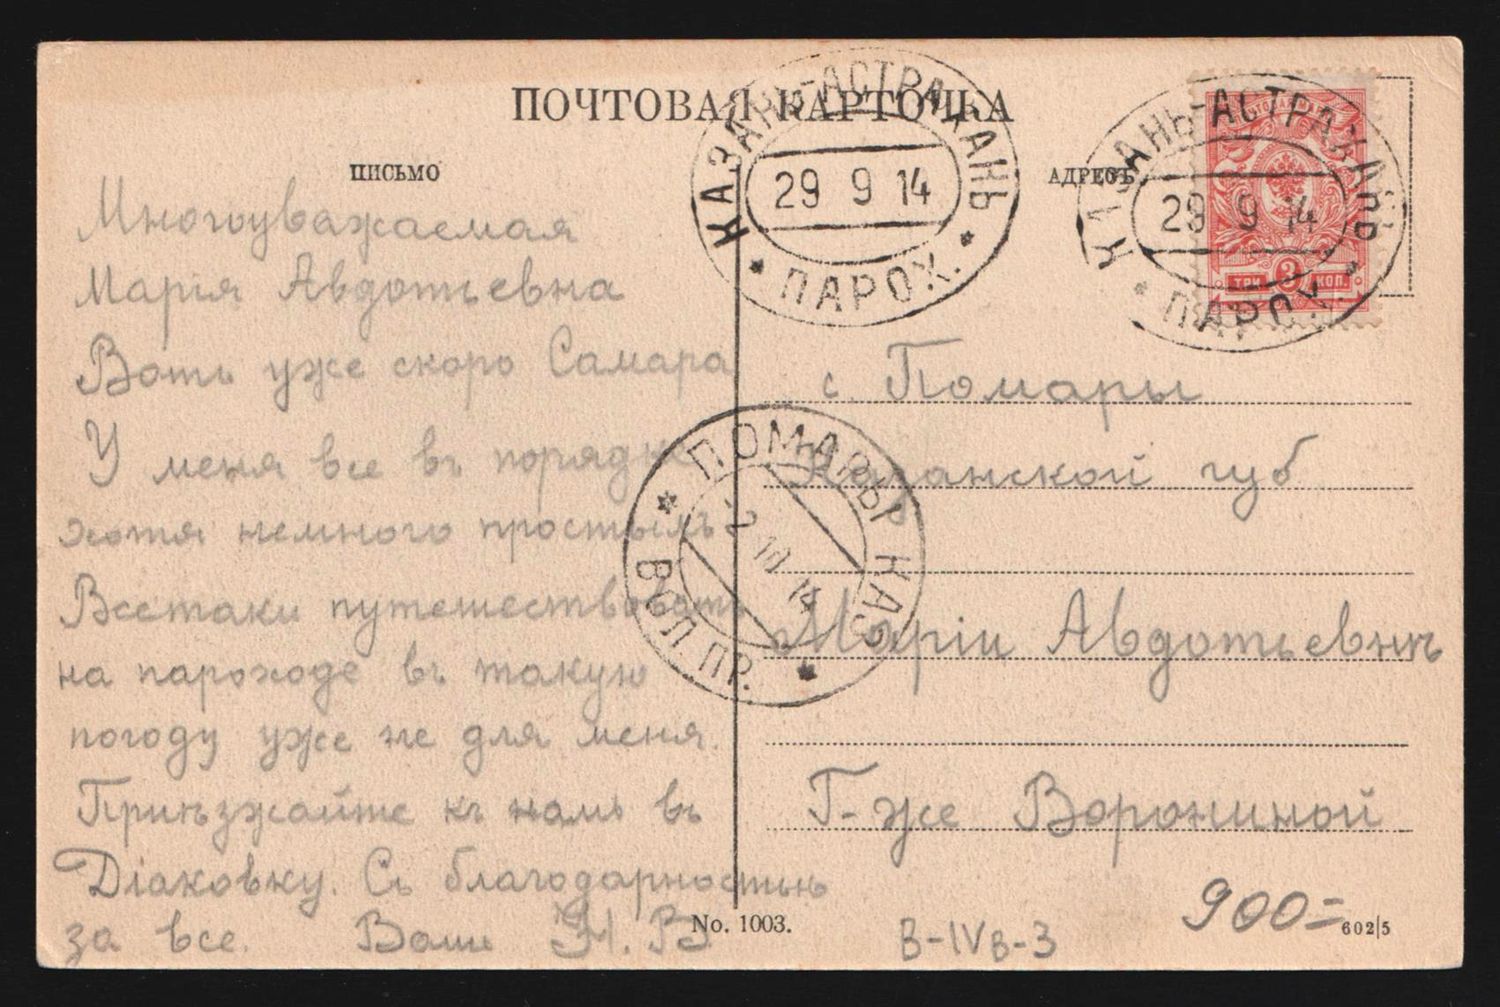 ПОЧТОВАЯ КАРТОЧКА
ПИСЬМО
АДРЕСЪ
КАЗАНЬ-АСТРАХАНЬ
29 9 14
ПАРОХ.
КАЗАНЬ-АСТРАХАНЬ
29 9 14
ПАРОХ.
ТРИ 3 КОП.
Многоуважаемая
Марія Авдотьевна
Вотъ уже скоро Самара
У меня все въ порядке
хотя немного простылъ
Всетаки путешествовать
на пароходе въ такую
погоду уже не для меня.
Приѣзжайте къ намъ въ
Діаковку. Съ благодарностью
за все. Вашъ Н. В
с. Помары
Казанской губ
Маріи Авдотьевнѣ
Г-же Ворониной
ПОМАРЫ КАЗ
2 10 14
ВОЛ. ПР.
No. 1003.
В-IVв-3
900=
602|5